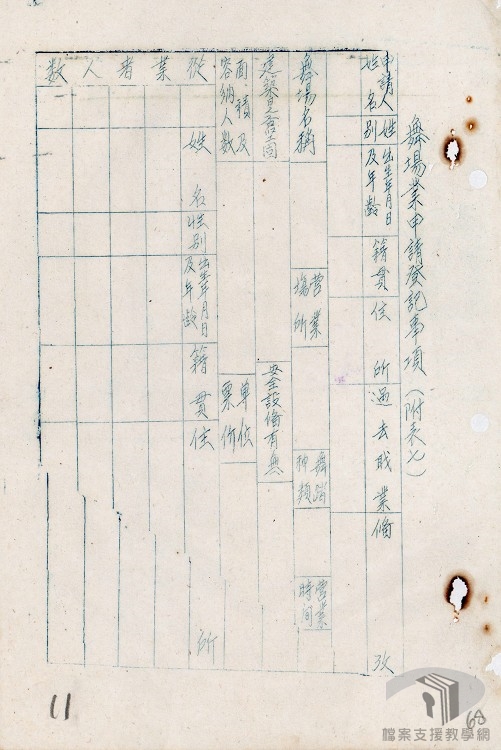 舞場業申請登記事項（附表七）
申請人姓名
性別
出生年月日及年齡
籍貫
住所
過去職業
備攷
舞場名稱
營業場所
舞蹈種類
營業時間
建築略圖
安全設備有無
面積及容納人數
單位票价
從業者人數
姓名
性別
出生年月日及年齡
籍貫
住所
11
68
檔案支援教學網